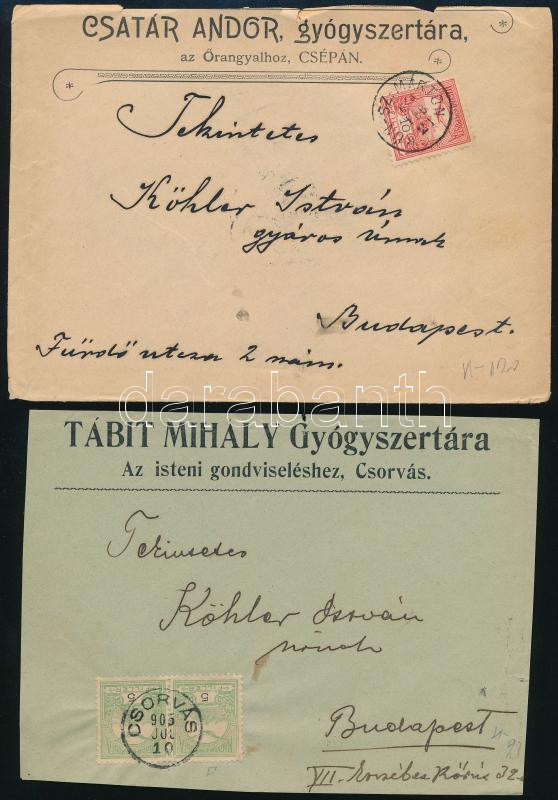 CSATÁR ANDOR, gyógyszertára,
az Őrangyalhoz, CSÉPÁN.
Tekintetes
Köhler István
gyáros Úrnak
Budapest.
Fürdő utcza 2 szám.
darabanth
TÁBIT MIHÁLY Gyógyszertára
Az isteni gondviseléshez, Csorvás.
Tekintetes
Köhler István
úrnak
5 5
CSORVÁS
905
JUL
10
Budapest
VII. Erzsébet Körút 32